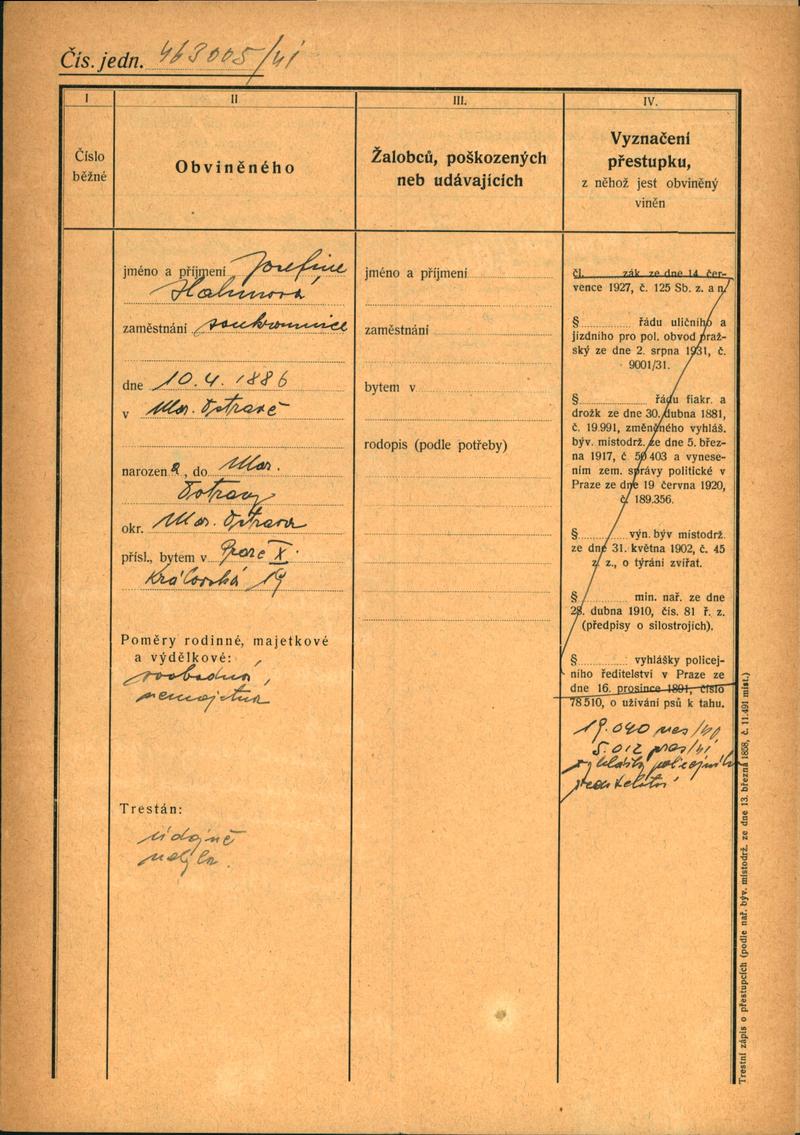 Čís. jedn. 463005/41
I
II
III.
IV.
Číslo
běžné
Obviněného
Žalobců, poškozených
neb udávajících
Vyznačení
přestupku,
z něhož jest obviněný
viněn
jméno a příjmení Josefine
zaměstnání soukromnice
dne 10. 4. 1886
v Mor. Ostravě
narozena, do Mor.
Ostravy
okr. Mor. Ostrava
přísl., bytem v Praze X.
Královská 19
Poměry rodinné, majetkové
a výdělkové:
svobodná,
nemajetná
Trestán:
údajně
nebyla.
jméno a příjmení
zaměstnání
bytem v
rodopis (podle potřeby)
čl. zák. ze dne 14. čer-
vence 1927, č. 125 Sb. z. a n.
§ řádu uličního a
jízdního pro pol. obvod praž-
ský ze dne 2. srpna 1931, č.
9001/31.
§ řádu fiakr. a
drožk ze dne 30. dubna 1881,
č. 19.991, změněného vyhláš.
býv. místodrž. ze dne 5. břez-
na 1917, č 50 403 a vynese-
ním zem. správy politické v
Praze ze dne 19 června 1920,
č. 189.356.
§ výn. býv místodrž.
ze dne 31. května 1902, č. 45
z. z., o týrání zvířat.
§ min. nař. ze dne
28. dubna 1910, čís. 81 ř. z.
(předpisy o silostrojích).
§ vyhlášky policej-
ního ředitelství v Praze ze
dne 16. prosince 1891, číslo
78.510, o užívání psů k tahu.
19.040 pres/40,
5.012 pres/41
vyhlášky policejního
ředitelství
Trestní zápis o přestupcích (podle nař. býv. místodrž. ze dne 13. března 1858, č. 11.491 míst.)